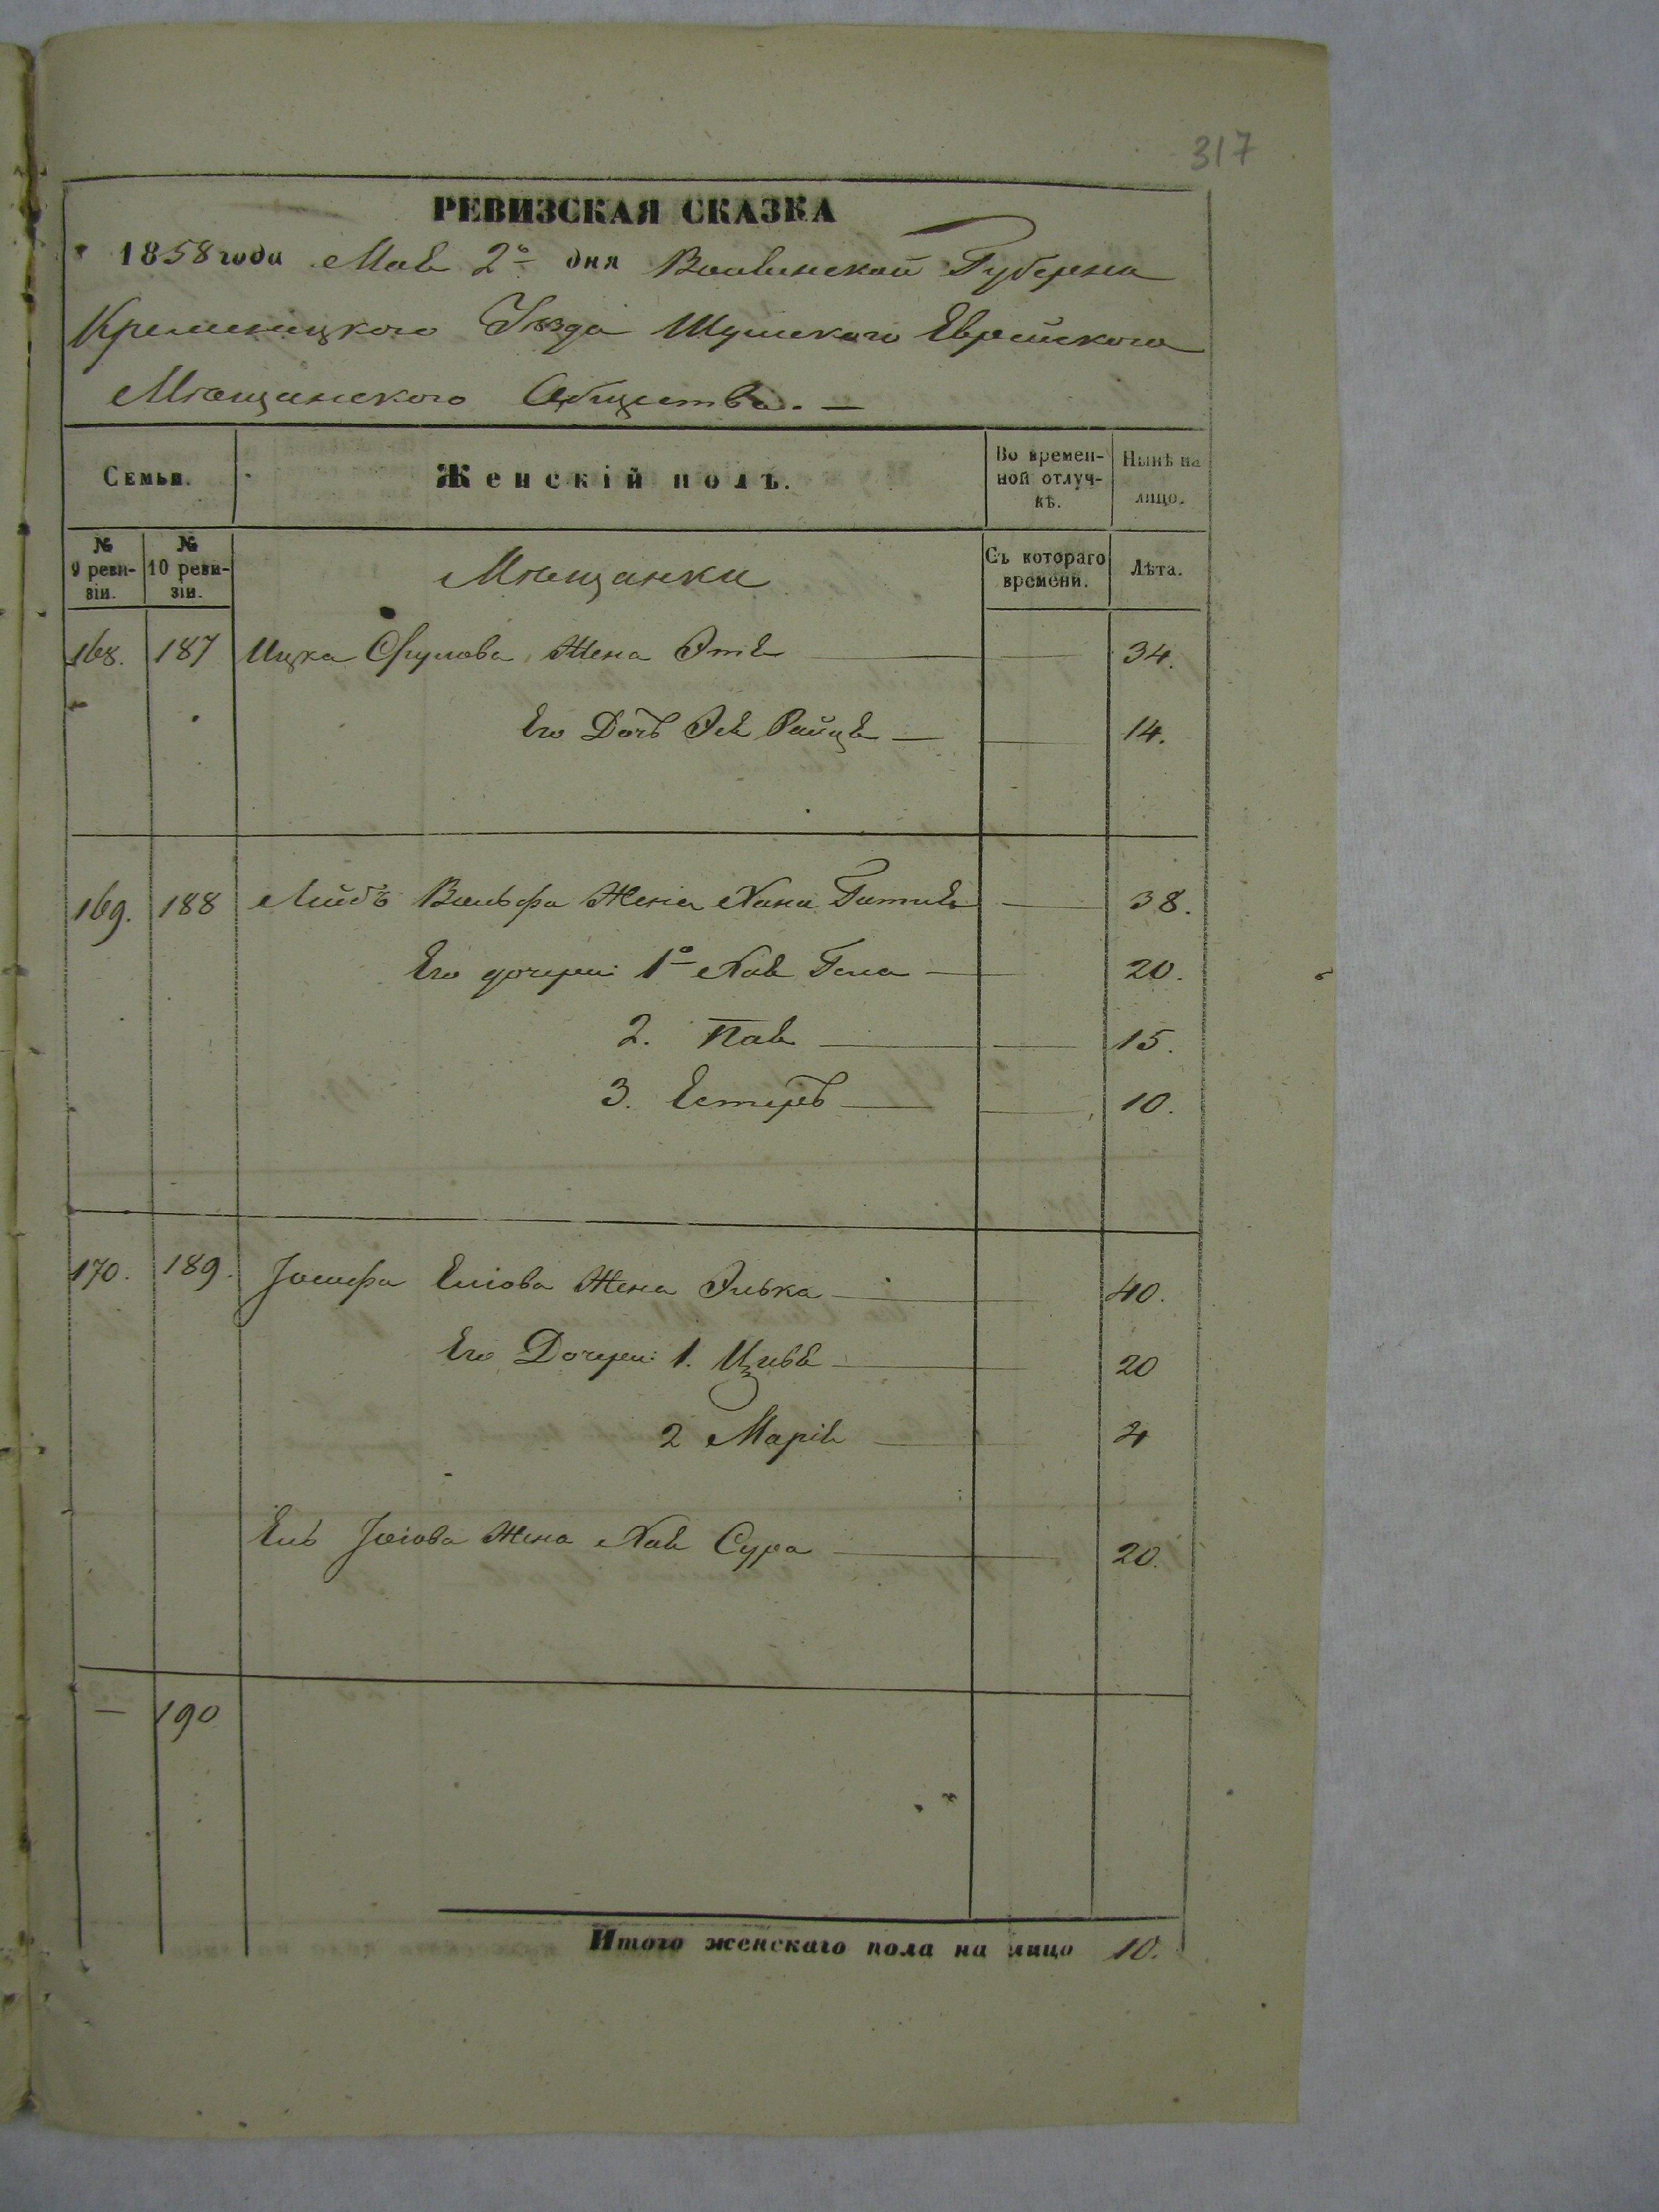 317
РЕВИЗСКАЯ СКАЗКА
1858 года Мая 2го дня Волынской Губерни
Кременецкого Уѣзда Шумского Еврейского
Мѣщанского Общества. —
Семьи. Женскій полъ. Во времен-ной отлуч-кѣ. Нынѣ на лицо.
№ 9 реви-зіи. № 10 реви-зіи. Мѣщанки Съ котораго времени. Лѣта.
168. 187 Ицка Сруловa Жена Этя 34.
Его Дочь Эя Райця — 14.
169. 188 Лейбъ Вольфа Жена Хана Гитля 38.
Его дочери: 1о Хая Гена 20.
2. Пая 15.
3. Естеръ 10.
170. 189. Іосифа Еліова Жена Элька 40.
Его Дочери: 1. Цивя 20
2 Марія 4
Ель Іосіова Жена Хая Сура 20.
— 190
Итого женскаго пола на лицо 10.